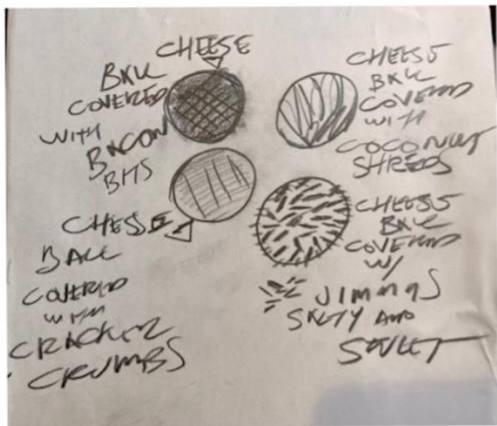 CHEESE
BALL
COVERED
WITH
BACON
BITS
CHEESE
BALL
COVERED
WITH
COCONUT
SHREDS
CHEESE
BALL
COVERED
WITH
CRACKER
CRUMBS
CHEESE
BALL
COVERED
W/
JIMMYS
SALTY AND
SWEET